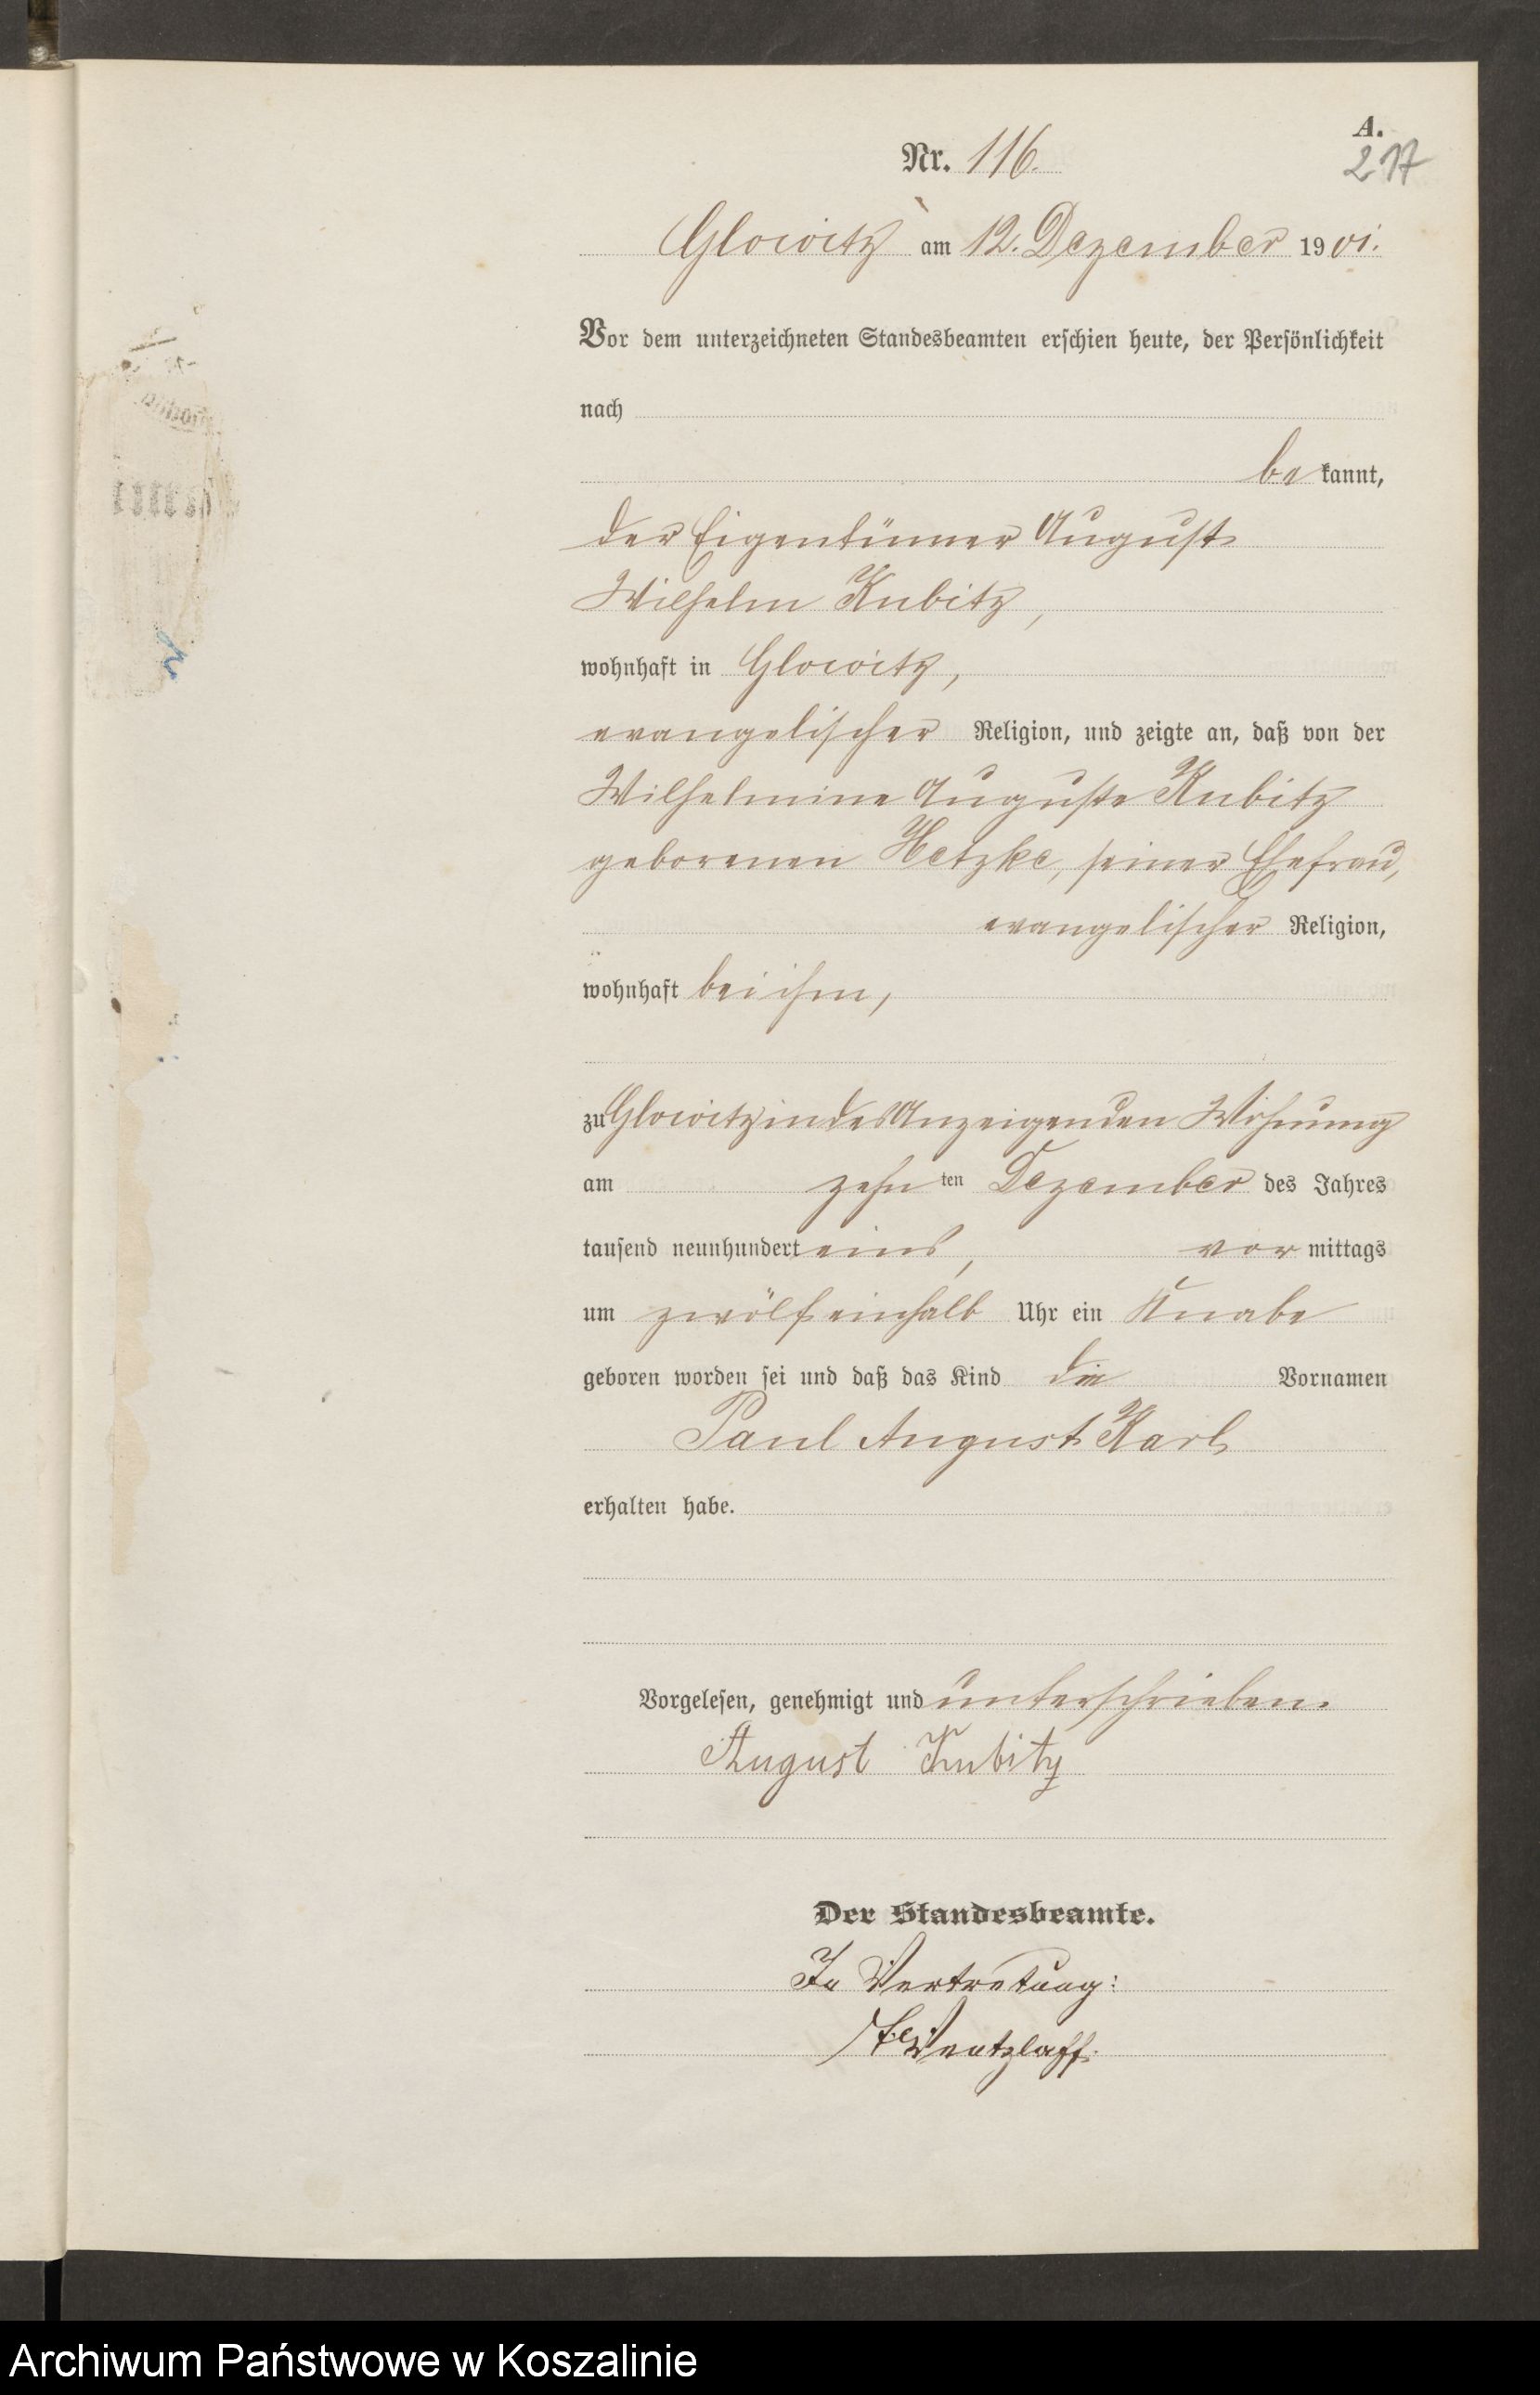 A.
217
Nr. 116.
Glowitz am 12. Dezember 1901.
Vor dem unterzeichneten Standesbeamten erschien heute, der Persönlichkeit
nach
be kannt,
der Eigentümer August
Wilhelm Kubitz,
wohnhaft in Glowitz,
evangelischer Religion, und zeigte an, daß von der
Wilhelmine Auguste Kubitz
geborenen Hetzke, seiner Ehefrau,
evangelischer Religion,
wohnhaft bei ihm,
zu Glowitz in des Anzeigenden Wohnung
am zehn ten Dezember des Jahres
tausend neunhundert eins, vor mittags
um zwölfeinhalb Uhr ein Knabe
geboren worden sei und daß das Kind die Vornamen
Paul August Karl
erhalten habe.
Vorgelesen, genehmigt und unterschrieben.
August Kubitz
Der Standesbeamte.
In Vertretung:
Wentzlaff.
Archiwum Państwowe w Koszalinie